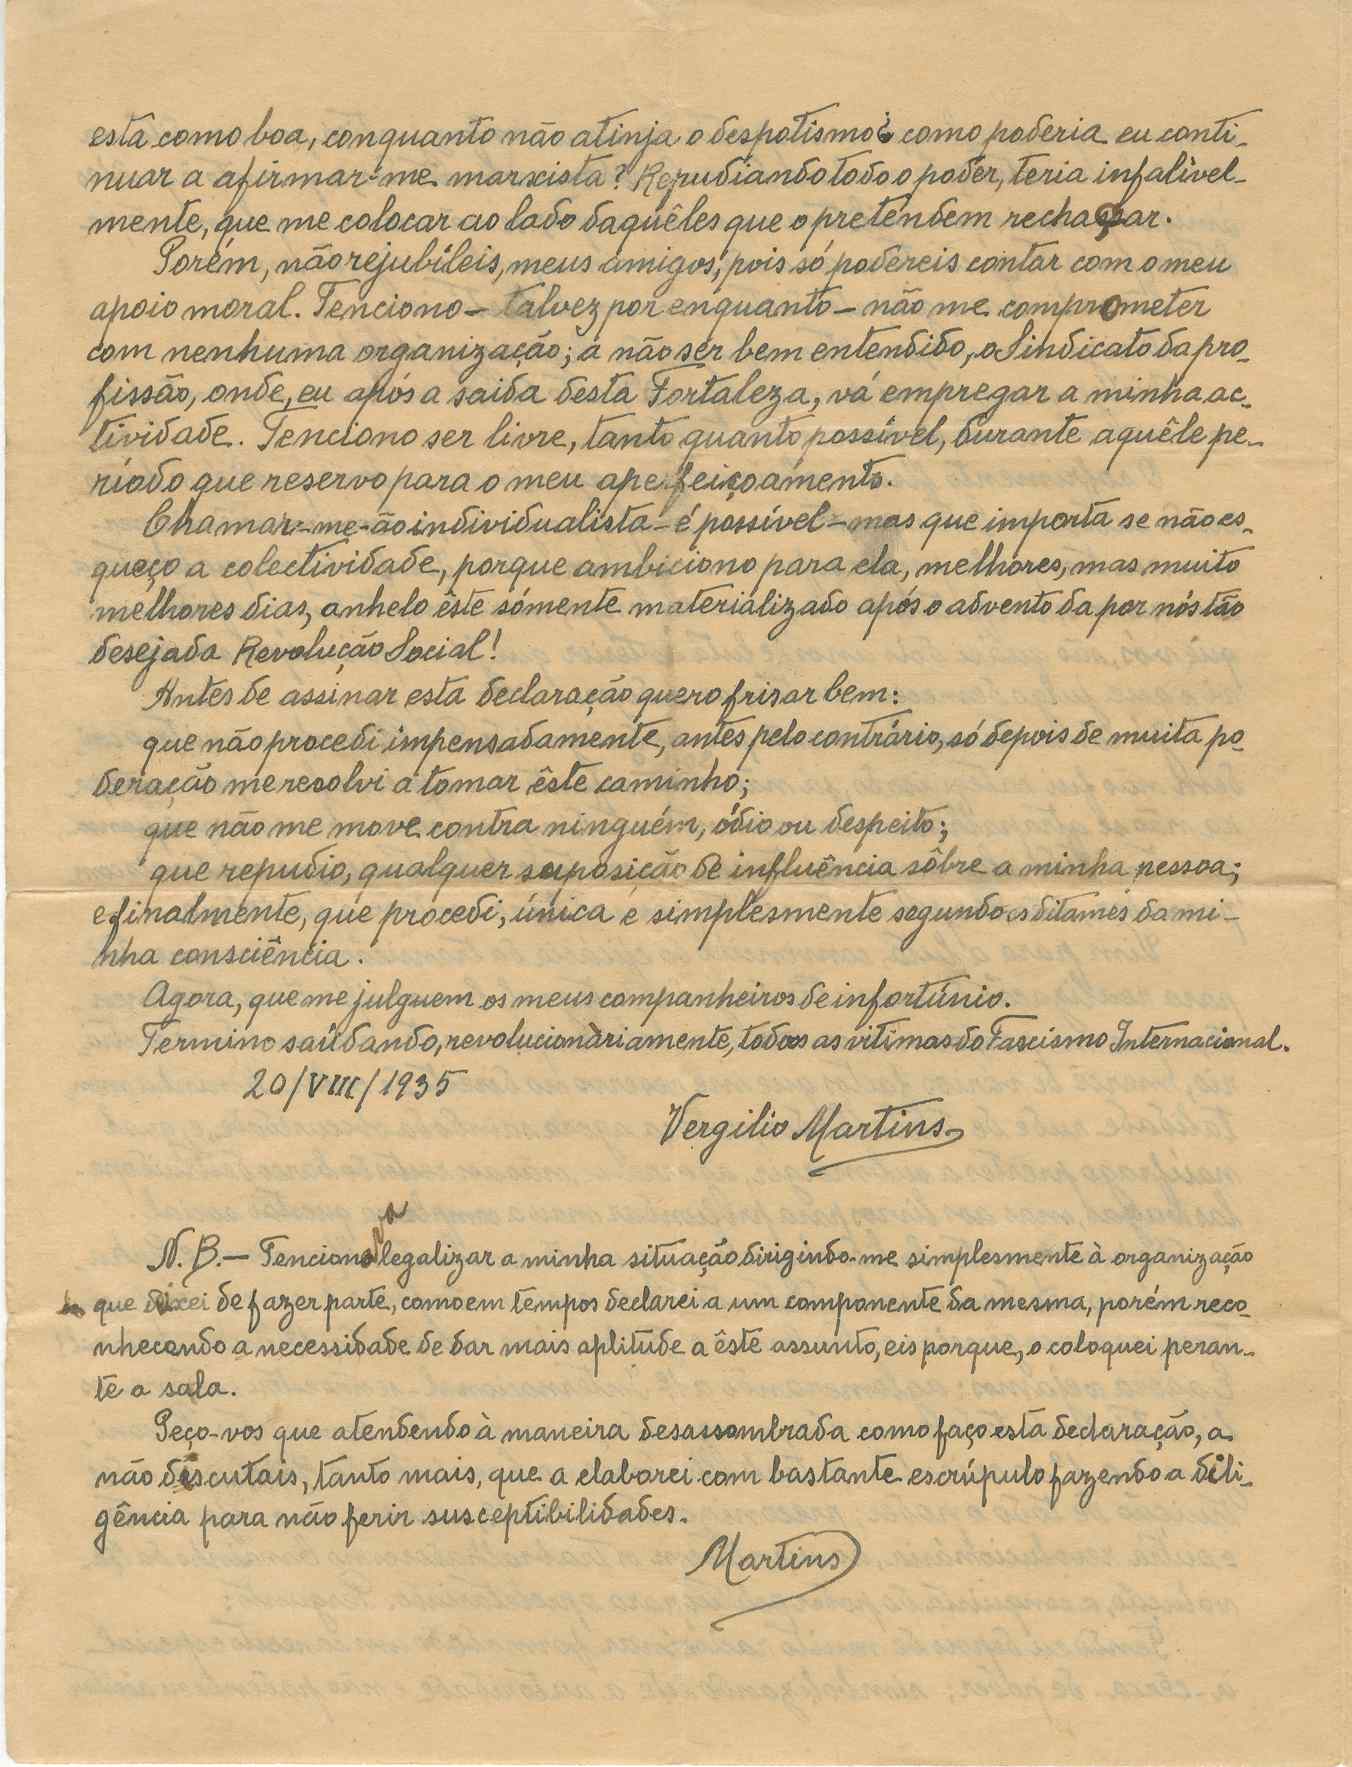 esta como boa, conquanto não atinja o despotismo¿ como poderia eu conti-
nuar a afirmar-me marxista? Repudiando todo o podêr, teria infalivel-
mente, que me colocar ao lado daquêles que o pretendem rechaçar.
Porém, não rejubileis, meus amigos, pois só podereis contar com o meu
apoio moral. Tenciono – talvez por enquanto – não me comprometer
com nenhuma organização; a não ser bem entendido, o Sindicato da pro-
fissão, onde, eu após a saida desta Fortaleza, vá empregar a minha ac-
tividade. Tenciono ser livre, tanto quanto possível, durante aquêle pe-
ríodo que reservo para o meu aperfeiçoamento.
Chamar-me-ão individualista – é possível – mas que importa se não es-
queço a colectividade, porque ambiciono para ela, melhores, mas muito
melhores dias, anhelo êste sómente materializado após o advento da por nós tão
desejada Revolução Social!
Antes de assinar esta declaração quero frisar bem:
que não procedi impensadamente, antes pelo contrário, só depois de muita po-
deração me resolvi a tomar êste caminho;
que não me move contra ninguém, ódio ou despeito;
que repudio, qualquer suposição de influência sôbre a minha pessoa;
e finalmente, que procedi, única e simplesmente segundo os ditames da mi-
nha consciência.
Agora, que me julguem os meus companheiros de infortúnio.
Termino saüdando, revolucionàriamente, todas as vitimas do Fascismo Internacional.
20/VIII/1935
Vergilio Martins
N. B. – Tenciono legalizar a minha situação dirigindo-me simplesmente à organização
que deixei de fazer parte, como em tempos declarei a um componente da mesma, porém reco-
nhecendo a necessidade de dar mais aplitude a êste assunto, eis porque, o coloquei peran-
te a sala.
Peço-vos que atendendo à maneira desassombrada como faço esta declaração, a
não discutais, tanto mais, que a elaborei com bastante escrúpulo fazendo a dili-
gência para não ferir susceptibilidades.
Martins